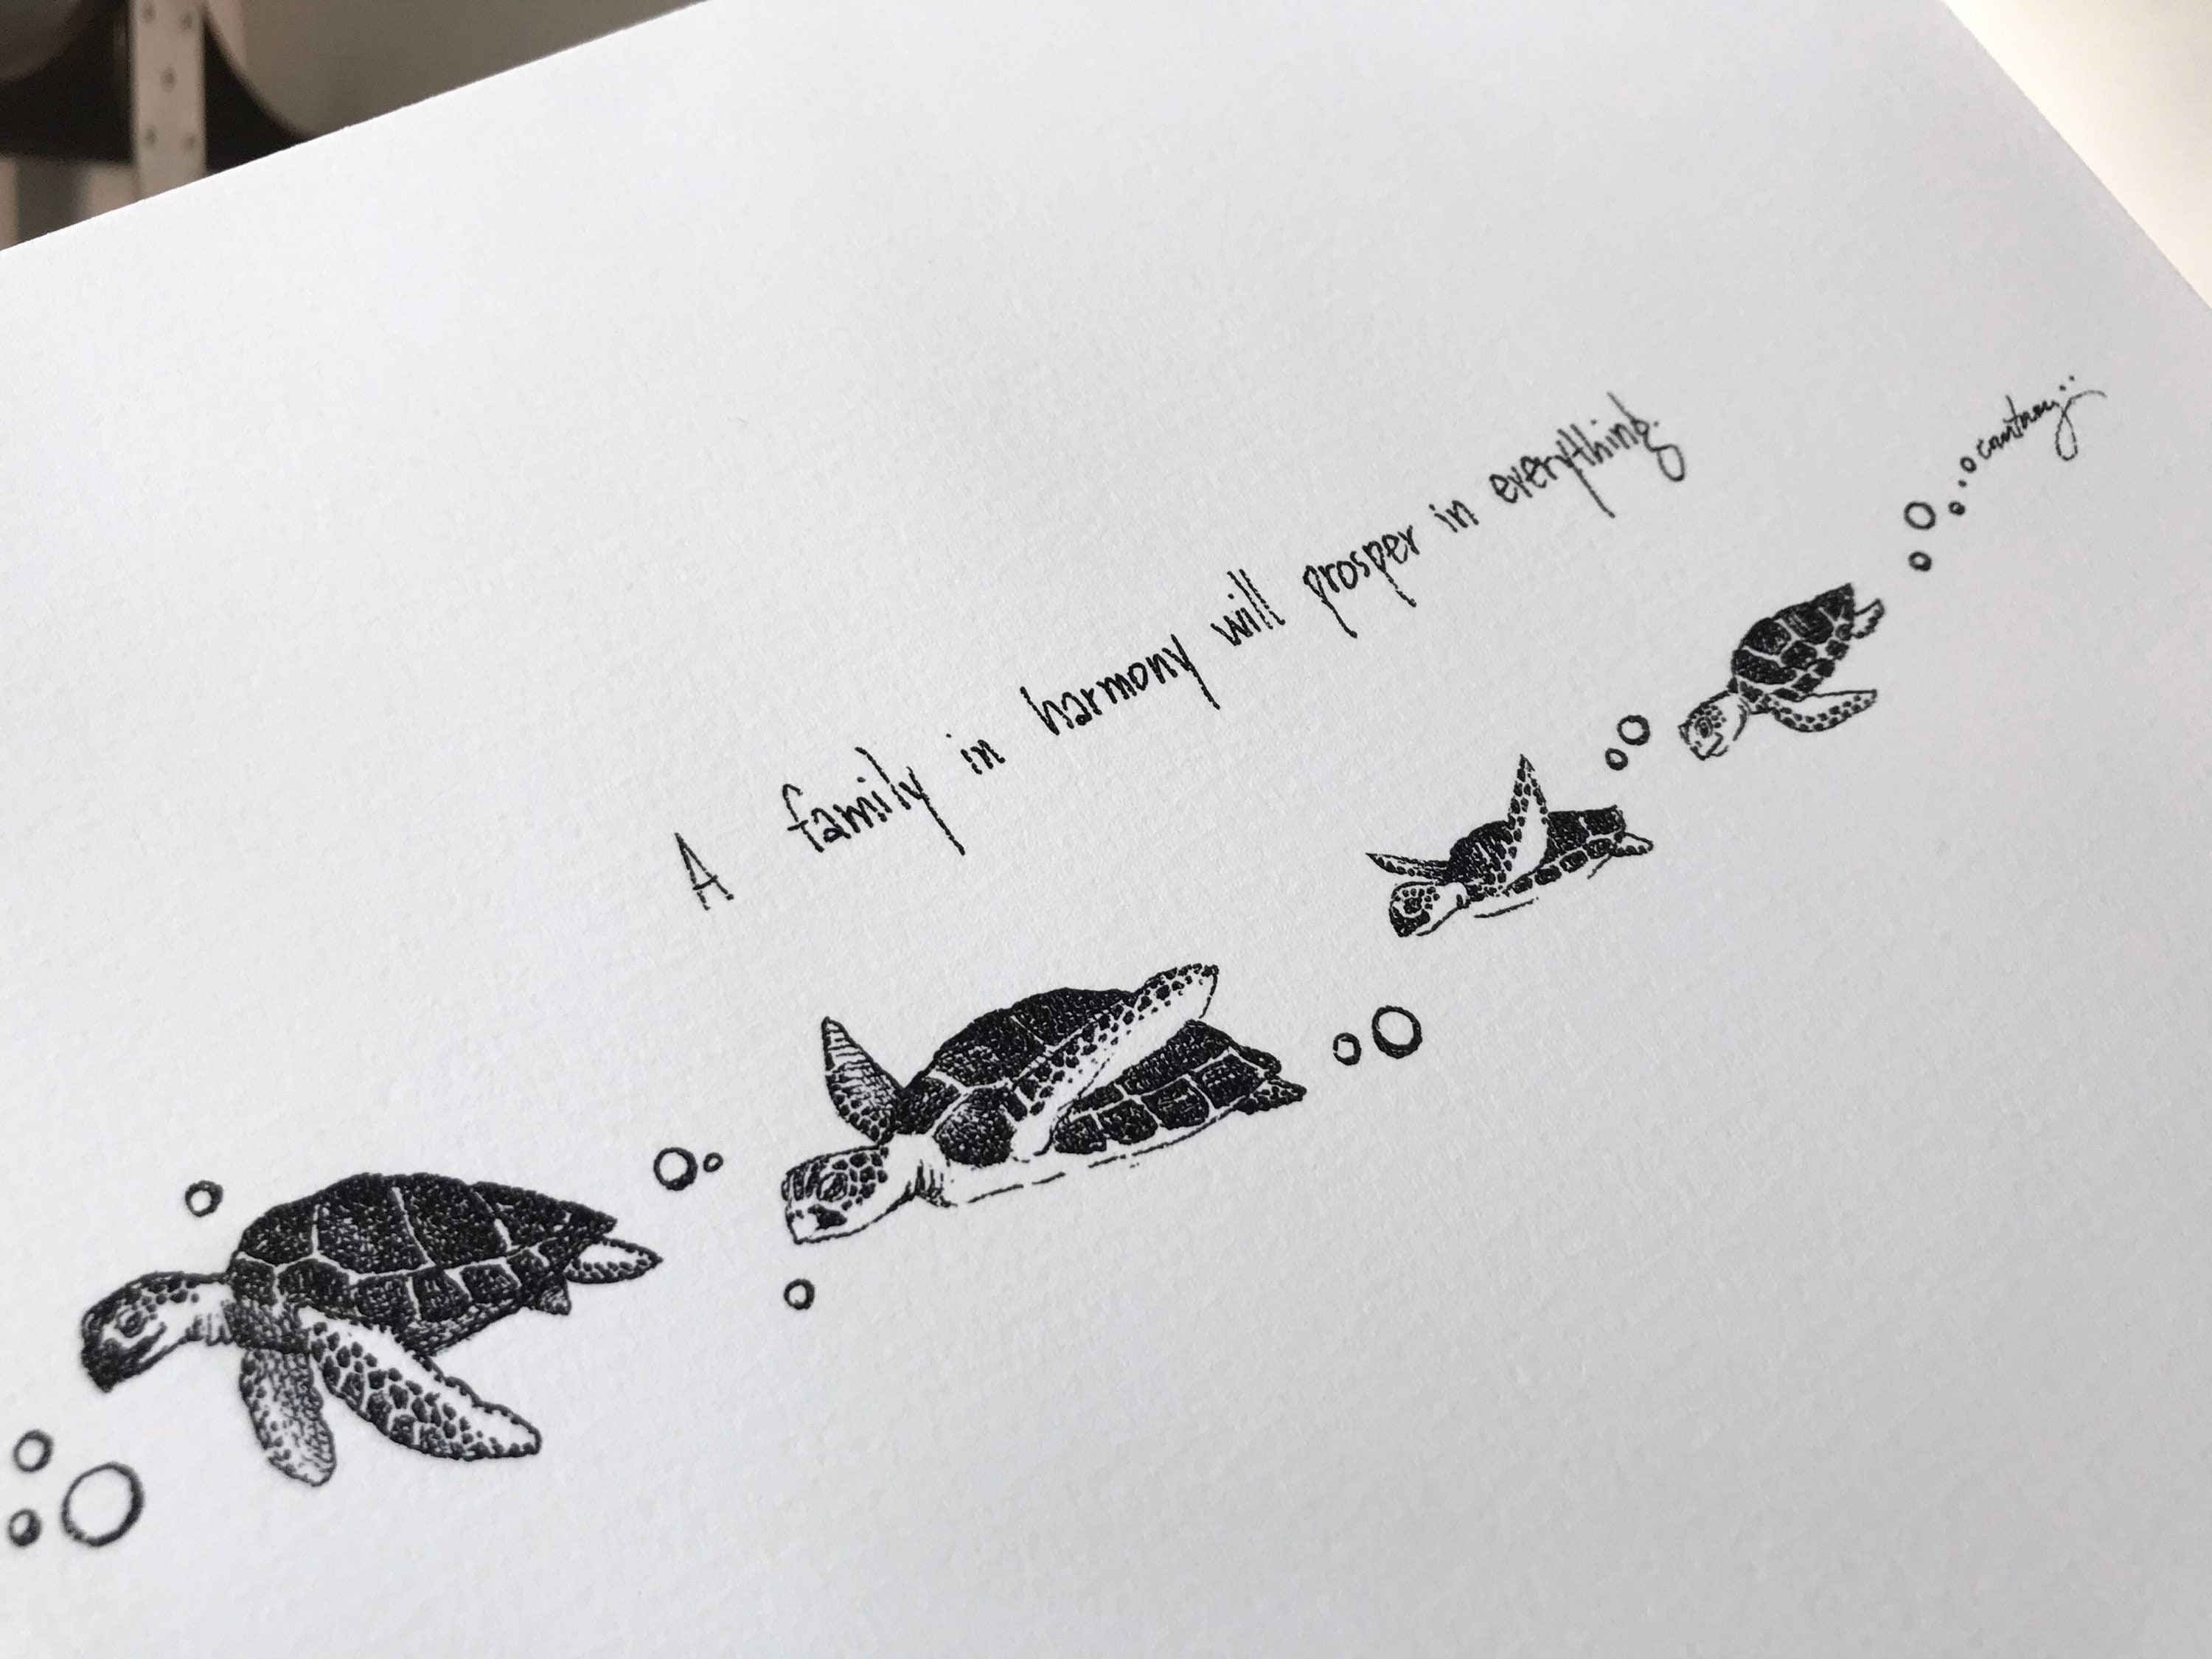 A family in harmony will prosper in everything.